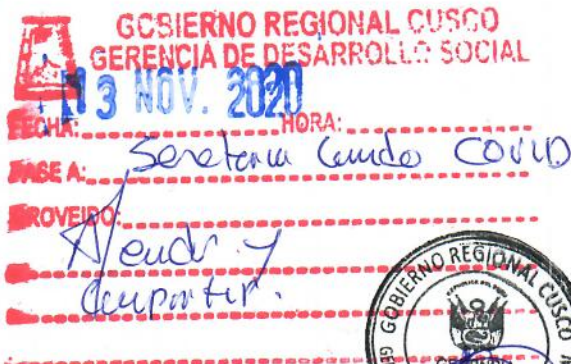 GOBIERNO REGIONAL CUSCO
GERENCIA DE DESARROLLO SOCIAL
13 NOV. 2020
FECHA: HORA:
PASE A: Secretaria COVID
PROVEIDO:
Atender y
GOBIERNO REGIONAL CUSCO